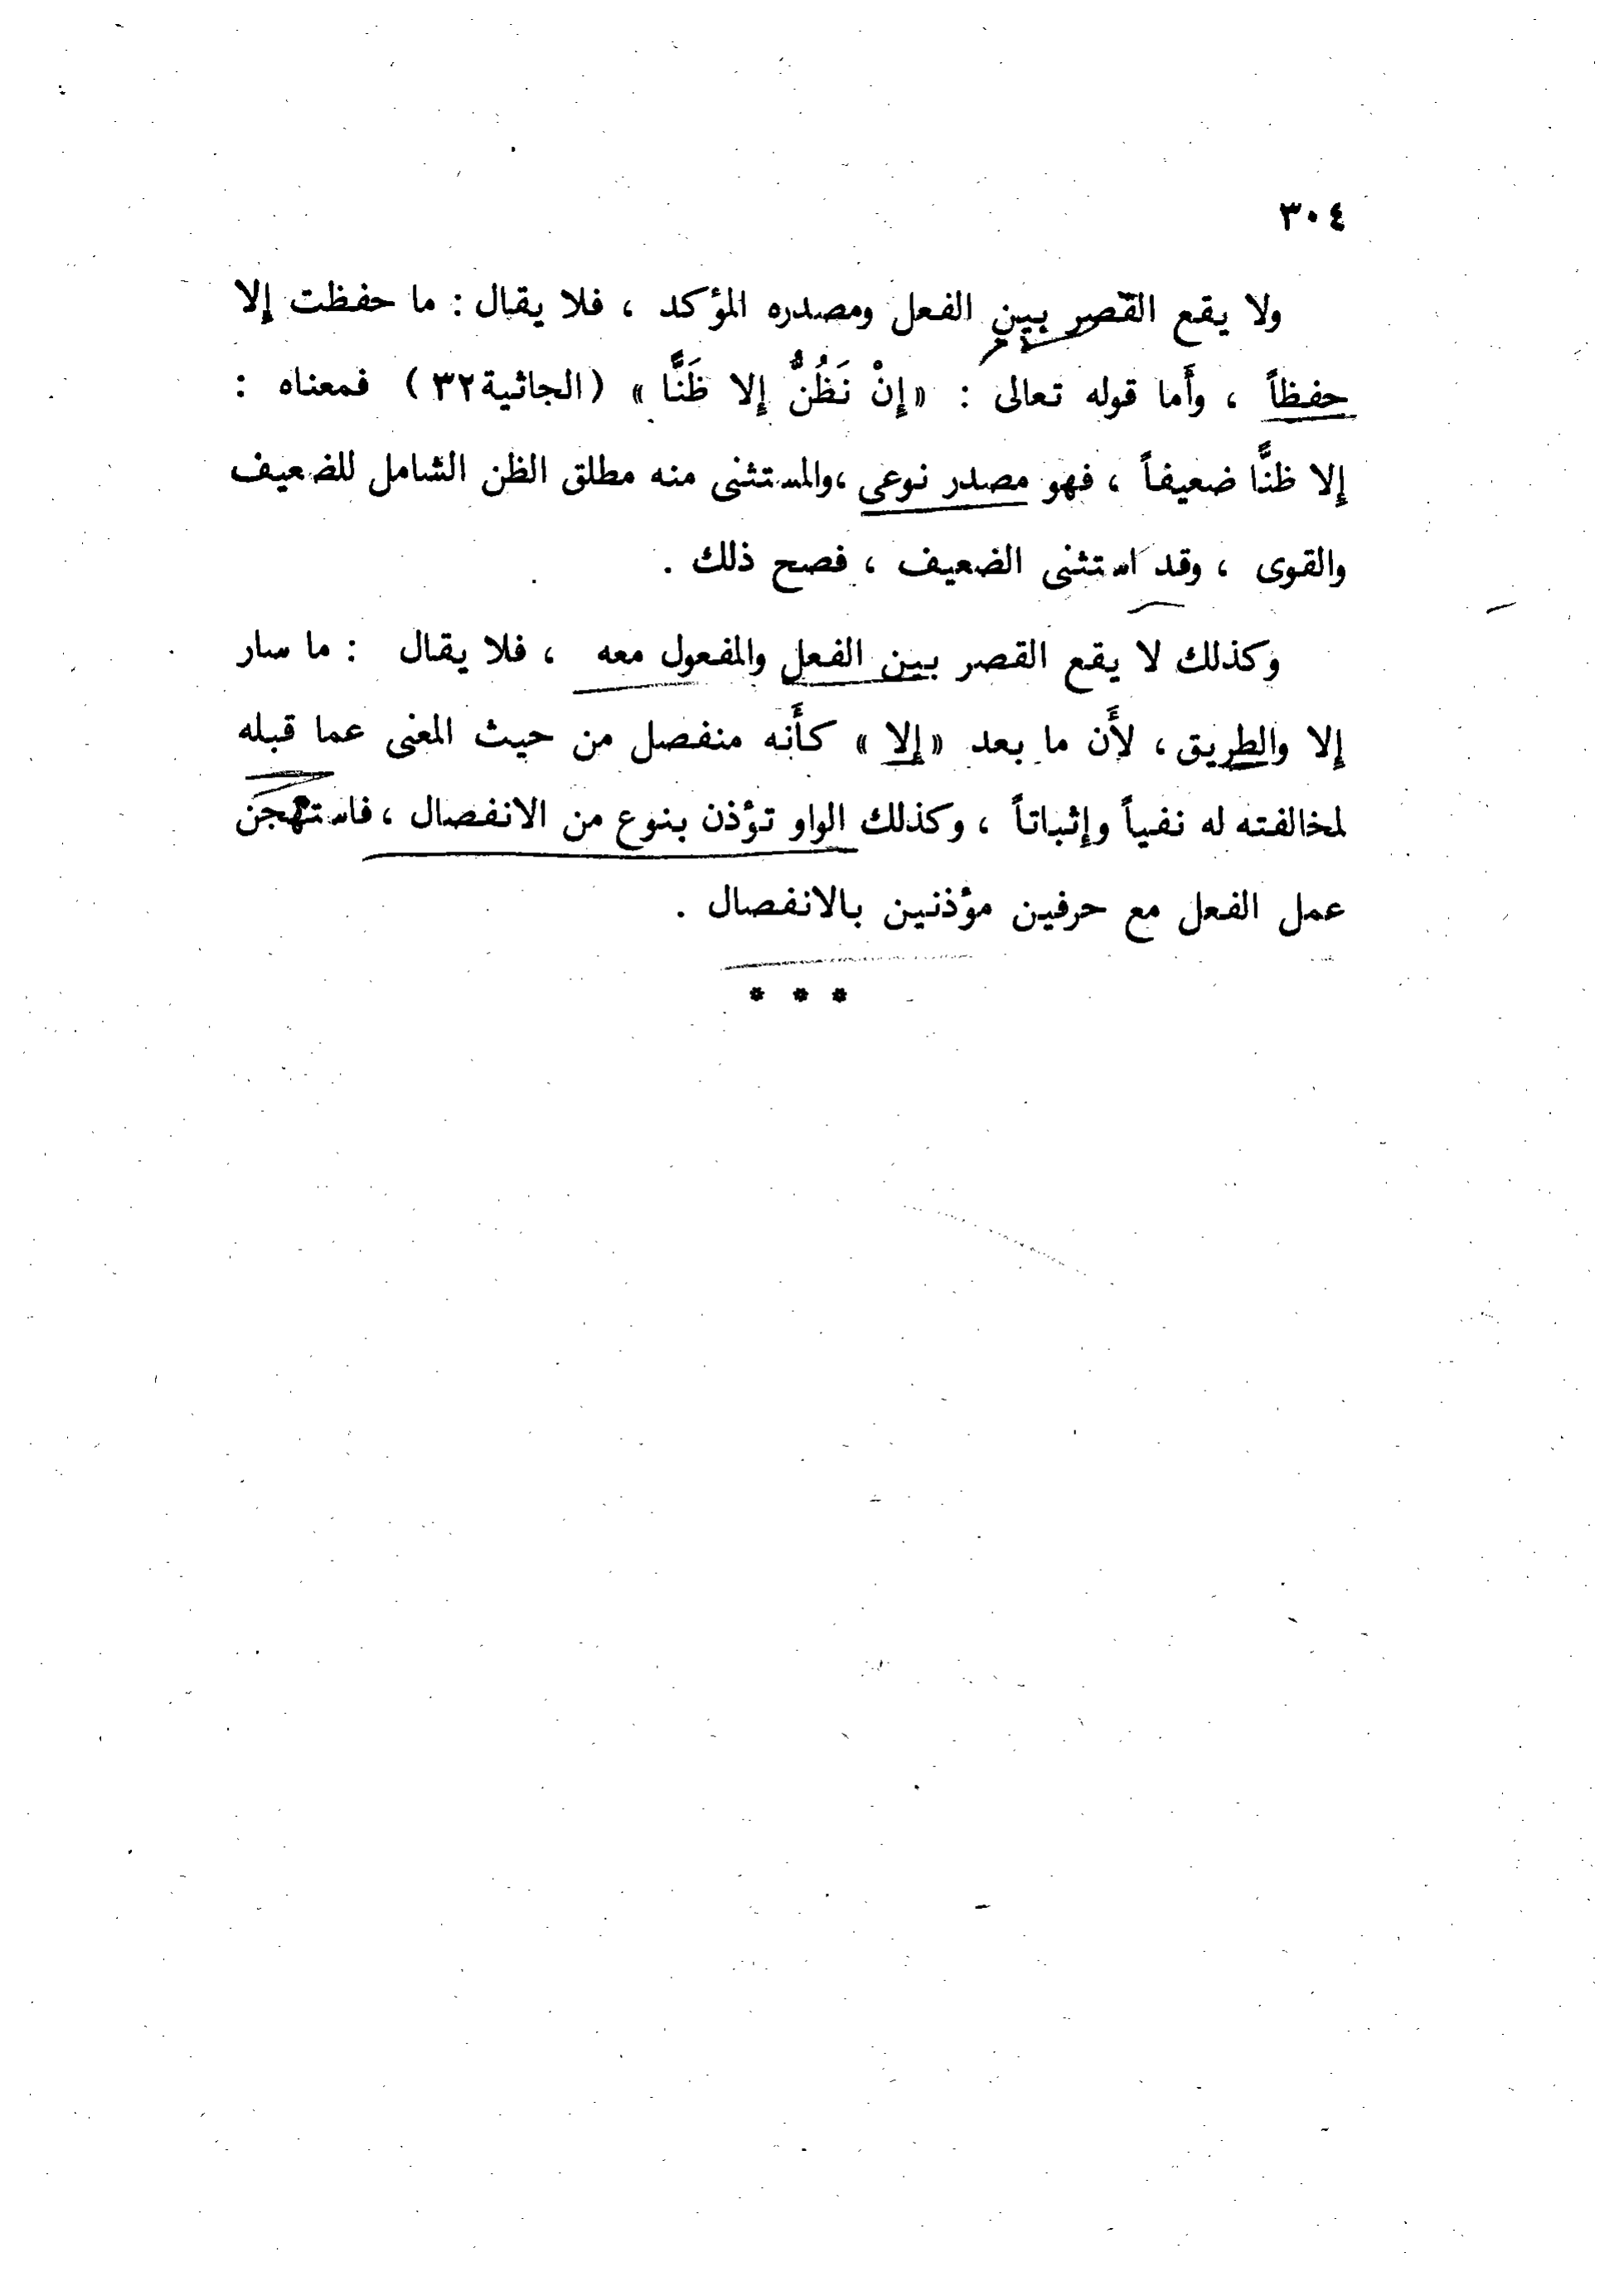 ٣٠٤
ولا يقع القصر بين الفعل ومصدره المؤكد ، فلا يقال : ما حفظت إلا
حفظاً ، وأَما قوله تعالى : «إِنْ نَظُنُّ إِلا ظَنًّا » (الجاثية٣٢) فمعناه :
إِلا ظنًّا ضعيفاً ، فهو مصدر نوعى ،والمستثنى منه مطلق الظن الشامل للضعيف
والقوى ، وقد استثنى الضعيف ، فصح ذلك .
وكذلك لا يقع القصر بين الفعل والمفعول معه ، فلا يقال : ما سار
إِلا والطريق ، لأَن ما بعد «إِلا » كأَنه منفصل من حيث المعنى عما قبله
لمخالفته له نفياً وإثباتاً ، وكذلك الواو تؤذن بنوع من الانفصال ، فاستهجن
عمل الفعل مع حرفين مؤذنين بالانفصال .
* * *